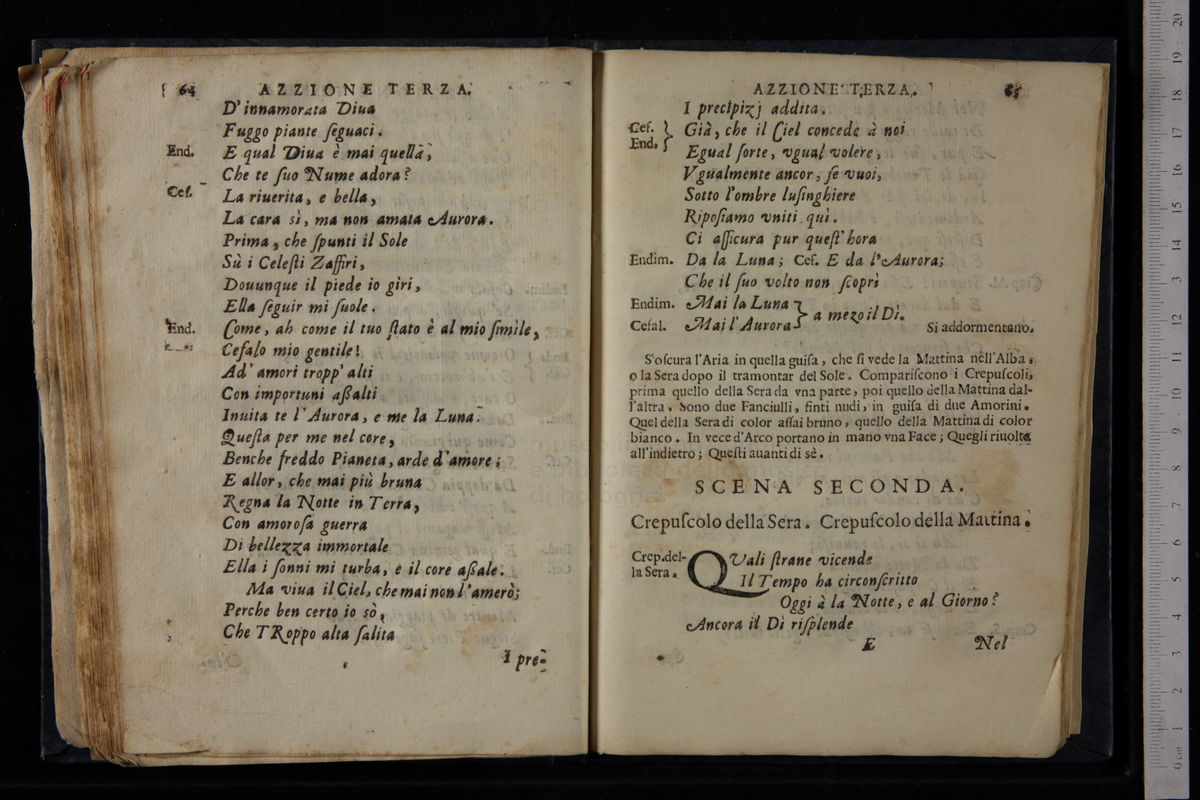 64 AZZIONE TERZA.
D'innamorata Diua
Fuggo piante ſeguaci.
End. E qual Diua è mai quella,
Che te ſuo Nume adora?
Ceſ. La riuerita, e bella,
La cara sì, ma non amata Aurora.
Prima, che ſpunti il Sole
Sù i Celeſti Zaffiri,
Douunque il piede io giri,
Ella ſeguir mi ſuole.
End. Come, ah come il tuo ſtato è al mio ſimile,
Cefalo mio gentile!
Ad' amori tropp' alti
Con importuni aßalti
Inuita te l'Aurora, e me la Luna.
Queſta per me nel core,
Benche freddo Pianeta, arde d'amore;
E allor, che mai più bruna
Regna la Notte in Terra,
Con amoroſa guerra
Di bellezza immortale
Ella i ſonni mi turba, e il core aßale.
Ma viua il Ciel, che mai non l'amerò;
Perche ben certo io sò,
Che TRoppo alta ſalita
I pre-
AZZIONE TERZA. 65
I precipizj addita.
Ceſ. End. } Già, che il Ciel concede à noi
Egual ſorte, vgual volere,
Vgualmente ancor, ſe vuoi,
Sotto l'ombre luſinghiere
Ripoſiamo vniti quì.
Ci aſſicura pur queſt'hora
Endim. Da la Luna; Ceſ. E da l'Aurora;
Che il ſuo volto non ſcoprì
Endim. Mai la Luna } a mezo il Dì.
Cefal. Mai l'Aurora
Si addormentano.
S'oſcura l'Aria in quella guiſa, che ſi vede la Mattina nell'Alba,
o la Sera dopo il tramontar del Sole. Compariſcono i Crepuſcoli,
prima quello della Sera da vna parte, poi quello della Mattina dal-
l'altra. Sono due Fanciulli, finti nudi, in guiſa di due Amorini.
Quel della Sera di color aſſai bruno, quello della Mattina di color
bianco. In vece d'Arco portano in mano vna Face; Quegli riuolta
all'indietro; Queſti auanti di sè.
SCENA SECONDA.
Crepuſcolo della Sera. Crepuſcolo della Mattina.
Crep.del-
la Sera.
QVali ſtrane vicende
Il Tempo ha circonſcritto
Oggi à la Notte, e al Giorno?
Ancora il Dì riſplende
E Nel